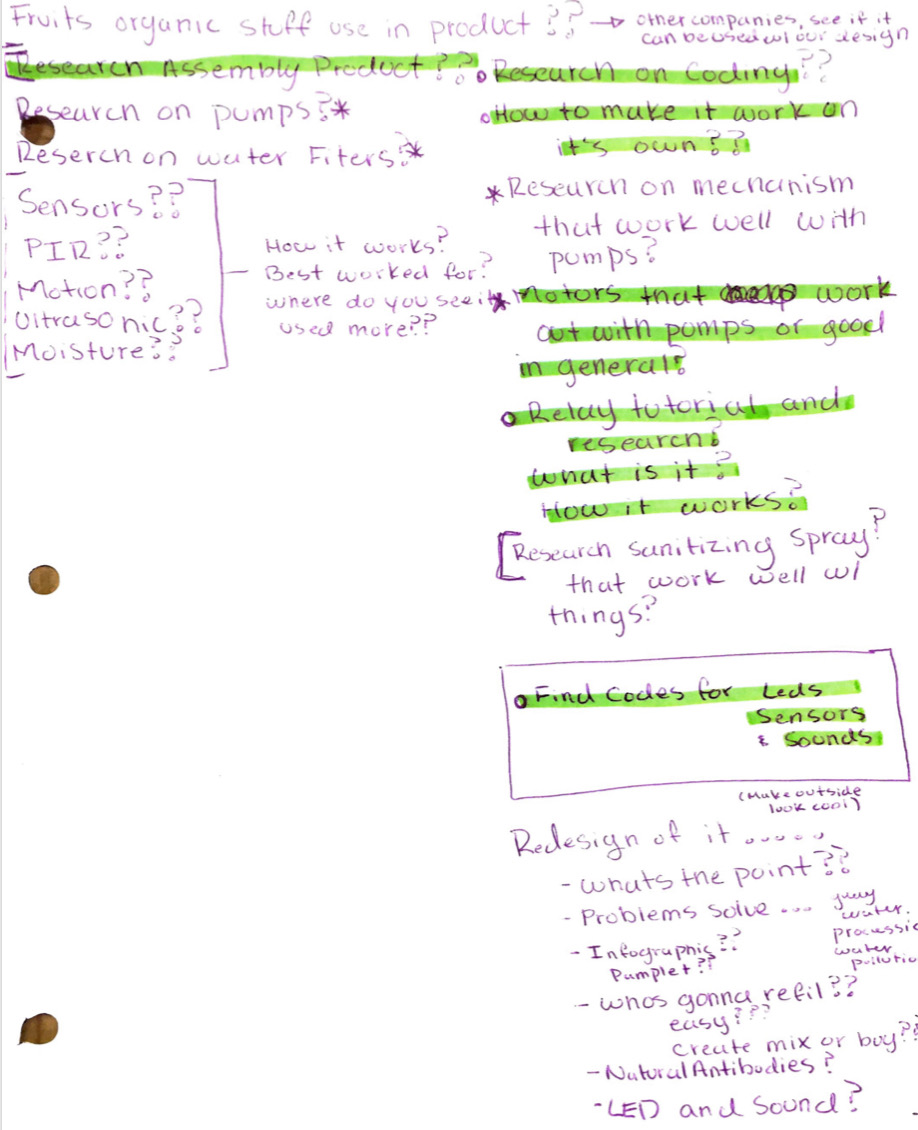 Fruits organic stuff use in product?? → other companies, see if it
can be used w/ our design
Research Assembly Product??
Research on pumps?*
Reserch on water Fiters?*
Sensors??
PIR??
Motion??
Ultrasonic??
Moisture??
How it works?
Best worked for?
where do you see it
used more??
Research on Coding??
How to make it work on
it's own??
*Research on mechanism
that work well with
pumps?
*Motors that work
out with pumps or good
in general?
Relay tutorial and
research?
What is it?
How it works?
[Research sanitizing spray?
that work well w/
things?
Find Codes for Leds
Sensors
& Sounds
(Make outside
look cool)
Redesign of it .....
- whats the point??
- Problems solve ... grey
water.
processin
water
pollutio
- Infographic??
Pamplet??
- whos gonna refil??
easy???
create mix or buy??
- Natural Antibodies?
- LED and Sound?